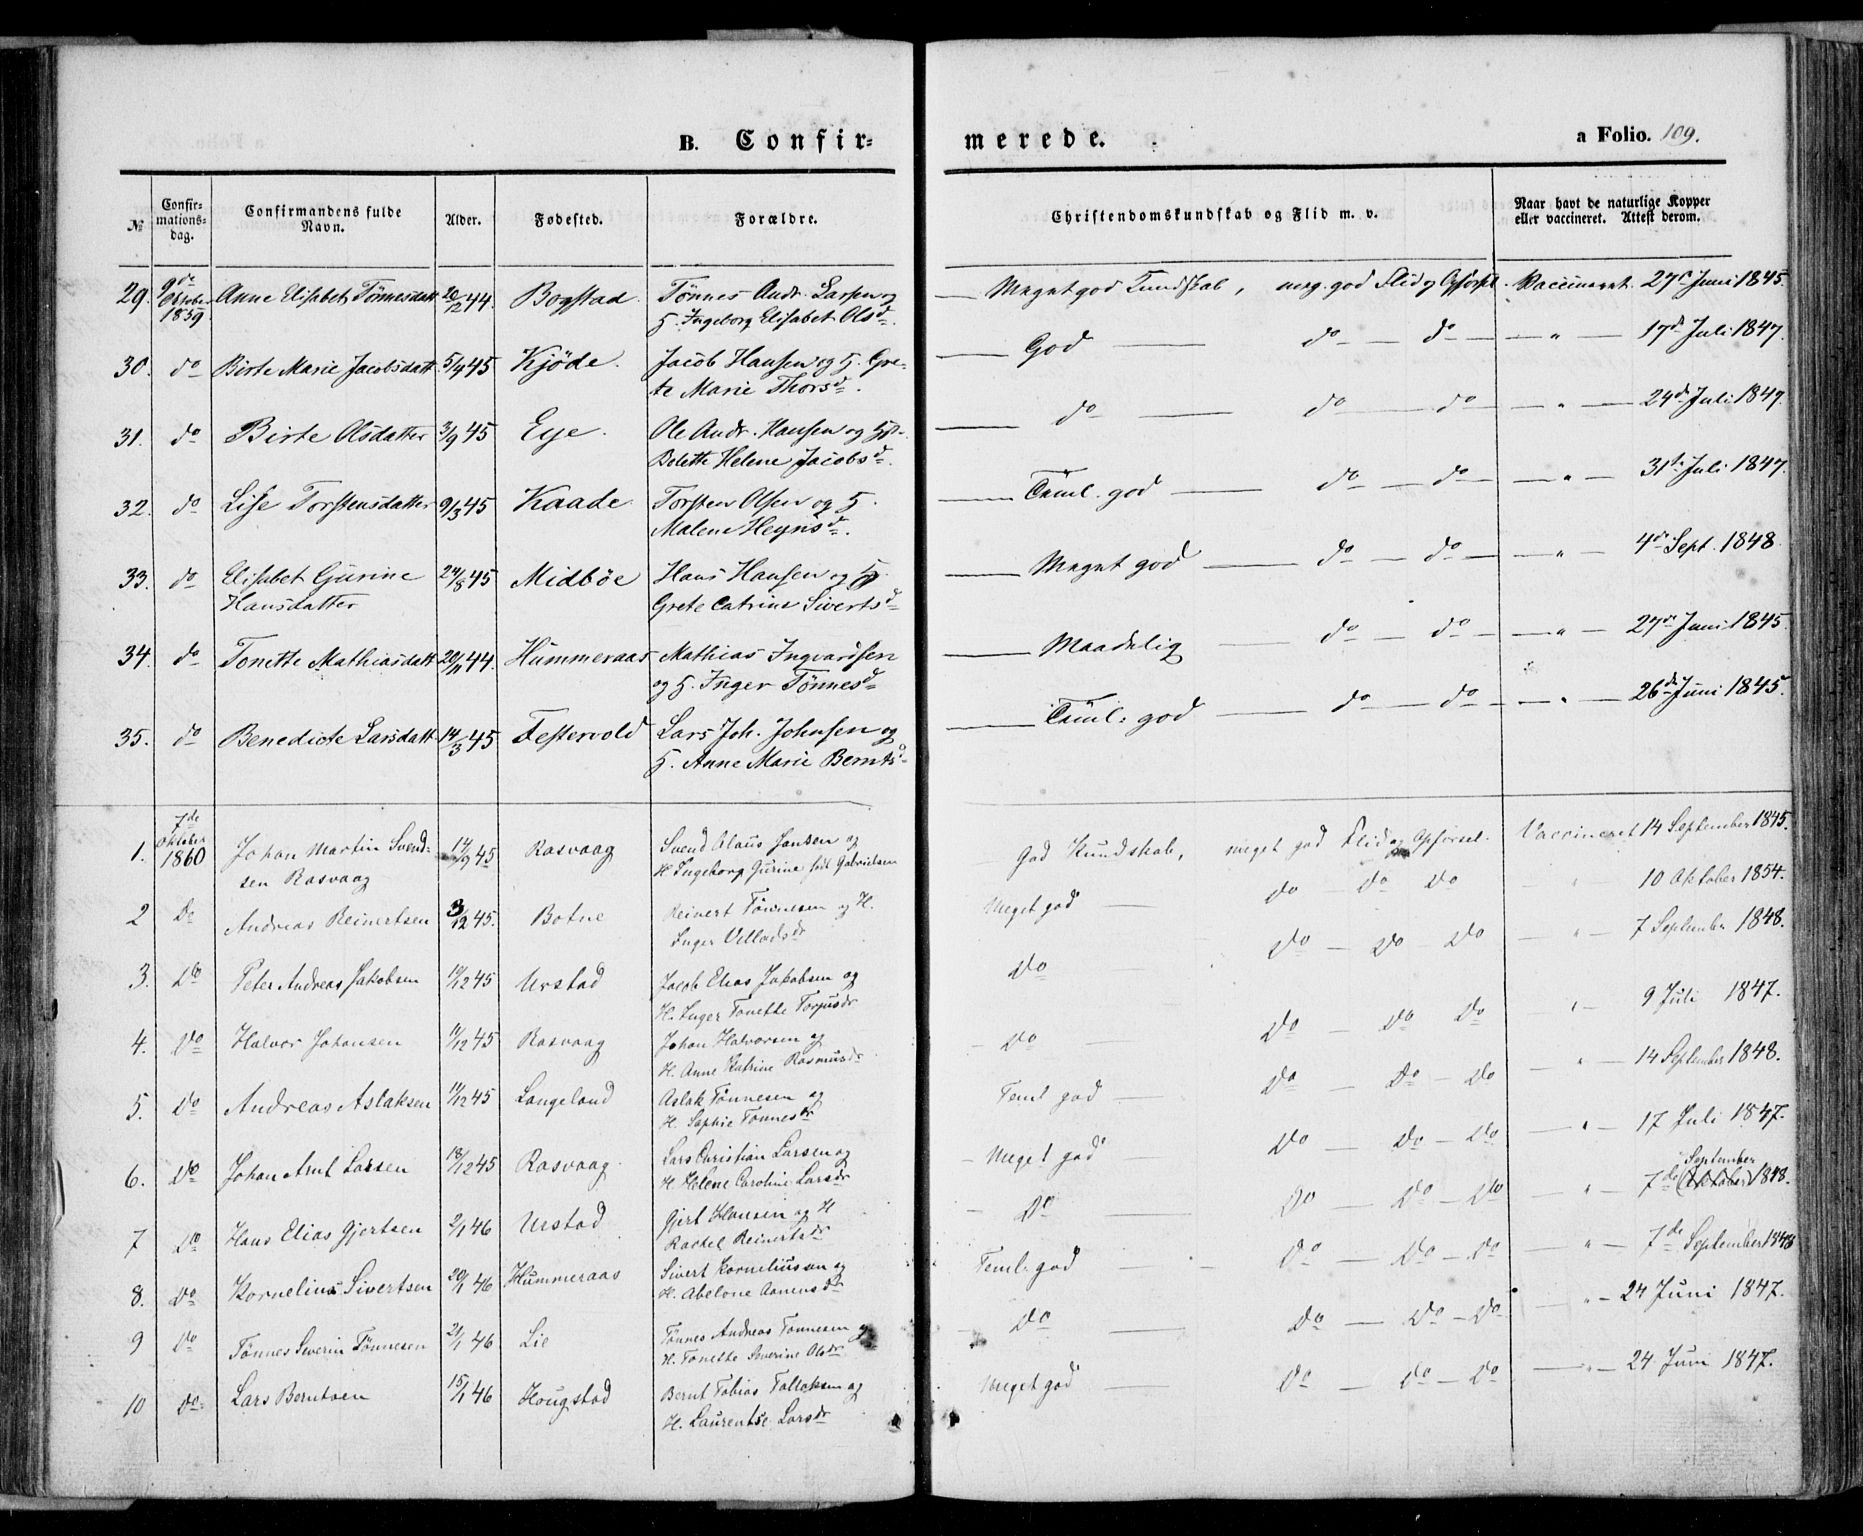 B. Confir=
merede.
a Folio. 109.
№
Confir-
mations-
dag.
Confirmandens fulde
Navn.
Alder.
Fødested.
Forældre.
Christendomskundskab og Flid m. v.
Naar havt de naturlige Kopper
eller vaccineret. Attest derom.
29. 9de Oktober 1859 Anne Elisabet Tönnesdatt 20/12 44. Bogstad. Tönnes Andr. Larsen og
H. Ingeborg Elisabet Olsd.
Meget god Kundskab, meg. god Flid og Opförsel. Vaccineret. 27 Juni 1845.
30. do Birte Marie Jacobsdatt. 5/4 45 Kjöde. Jacob Hansen og H. Gre-
te Marie Thorsd.
God do do " 17de Juli 1847.
31. do Birte Olsdatter 3/9 45 Eye. Ole Andr. Hansen og H.
Belette Helene Jacobsd.
do do do " 24de Juli 1847.
32. do Lise Torstensdatter 9/3 45 Kaade Torsten Olsen og H.
Malene Heynsd.
Teml. god do do " 31te Juli 1847.
33. do Elisabet Gurine 24/8 45 Midböe Hans Hansen og H.
Hansdatter Grete Catrine Sivertsd
Meget god do do " 4de Sept. 1848
34. do Tonette Mathiasdatt 20/11 44. Hummeraas Mathias Ingvardsen
og H. Inger Tönnesd
Maadelig do do " 27de Juni 1845.
35. do Benedicte Larsdatt 14/3 45 Festervold Lars Joh. Johnsen og
H. Anne Marie Berntsd
Teml. god do do " 26de Juni 1845.
1. 7de Oktober 1860 Johan Martin Svend- 14/9 45 Rasvaag Svend Olaus Jansen og
sen Rasvaag H. Ingeborg Gurine föd Gabrielsen
God Kundskab, meget god Flid og Opförsel. Vaccineret 14 September 1845.
2 Do Andreas Reinertsen 3/12 45. Botne Reinert Tönnesen og H.
Inger Velladsdr
Meget god Do Do Do " 10 Oktober 1854.
3. Do Peter Andreas Jakobsen 10/12 45 Urstad Jacob Elias Jakobsen og
H. Inger Tonette Torjusdr
Do Do Do Do " 7 September 1848.
4. Do Halvor Johansen 11/12 45 Rasvaag Johan Halvorsen og
H. Anne Katrine Rasmusdr
Do Do Do Do " 9 Juli 1847.
5. Do Andreas Aslaksen 11/12 45 Langeland Aslak Tönnesen og
H. Sophie Tönnesdr
Teml god Do Do Do " 14 September 1848.
6. Do Johan Arnt Larsen 18/12 45 Rasvaag. Lars Christian Larsen og
H. Helene Caroline Larsdr
Meget god Do Do Do " 17 Juli 1847.
7 Do Hans Elias Gjertsen 2/1 46 Urstad Gjert Hansen og H
Rackel Reinertsdr
Do Do Do Do " 7de September (Oktober) 1848.
8. Do Kornelius Sivertsen 20/1 46 Hummeraas Sivert Korneliussen og
H. Abelone Aanensdr
Teml. god Do Do Do " 7de September 1848
9 Do Tönnes Severin Tönnesen 21/1 46 Lie Tönnes Andreas Tönnesen og
H. Tonette Severine Olsdr
Do Do Do Do " 24 Juni 1847.
10 Do. Lars Berntsen 15/1 46 Hougstad Bernt Tobias Tollaksen og
H. Laurentse Larsdr
Meget god Do Do Do " 24 Juni 1847.